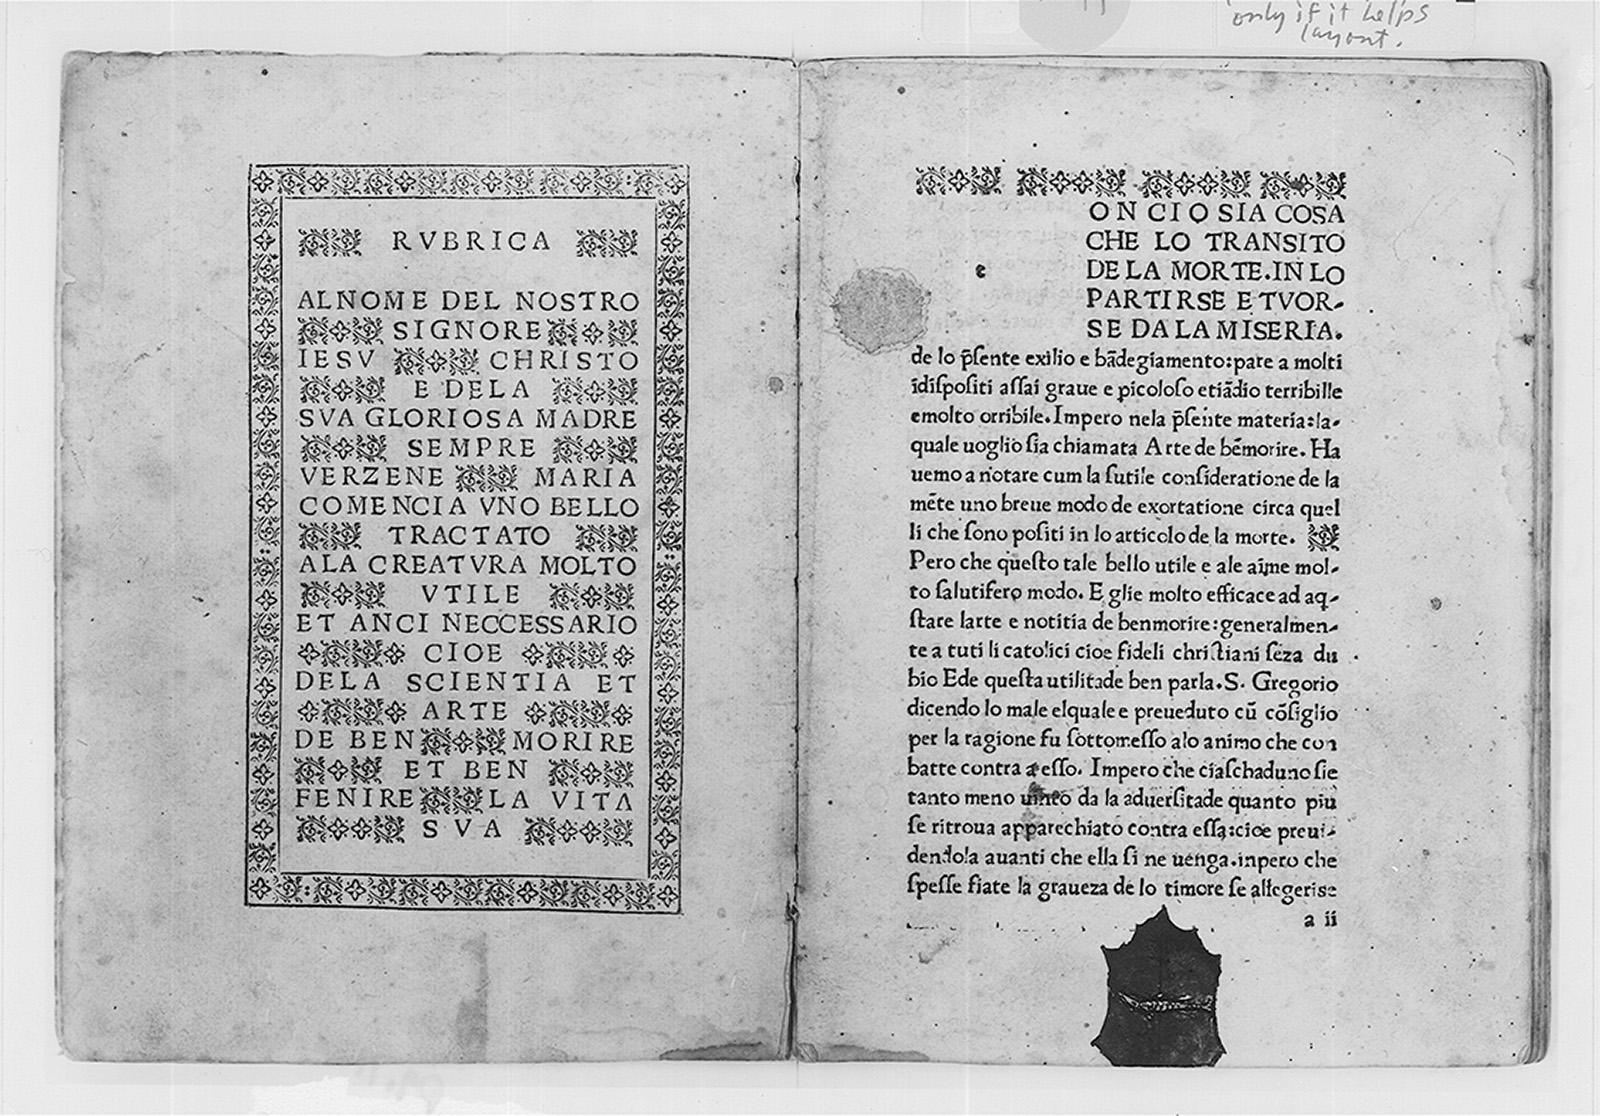 only if it helps
layout.
RVBRICA
AL NOME DEL NOSTRO
SIGNORE
IESV CHRISTO
E DELA
SVA GLORIOSA MADRE
SEMPRE
VERZENE MARIA
COMENCIA VNO BELLO
TRACTATO
ALA CREATVRA MOLTO
VTILE
ET ANCI NECCESSARIO
CIOE
DELA SCIENTIA ET
ARTE
DE BEN MORIRE
ET BEN
FENIRE LA VITA
SVA
c
ON CIO SIA COSA
CHE LO TRANSITO
DE LA MORTE.IN LO
PARTIRSE E TVOR-
SE DA LA MISERIA.
de lo p̄sente exilio e bādegiamento:pare a molti
īdispositi assai graue e picoloso etiādio terribille
e molto orribile.Impero nela p̄sente materia:la-
quale uoglio sia chiamata Arte de bēmorire. Ha
uemo a notare cum la sutile consideratione de la
mēte uno breue modo de exortatione circa quel
li che sono positi in lo articolo de la morte.
Pero che questo tale bello utile e ale aīme mol-
to salutifero modo. E glie molto efficace ad aq-
stare larte e notitia de benmorire:generalmen-
te a tuti li catolici cioe fideli christiani sēza du
bio Ede questa utilitade ben parla.S. Gregorio
dicendo lo male elquale e preueduto cū cōsiglio
per la ragione fu sottomesso alo animo che con
batte contra a esso. Impero che ciaschaduno sie
tanto meno uinto da la aduersitade quanto piu
se ritroua apparechiato contra essa:cioe preui-
dendola auanti che ella si ne uenga.inpero che
spesse fiate la graueza de lo timore se allegerise
a ii